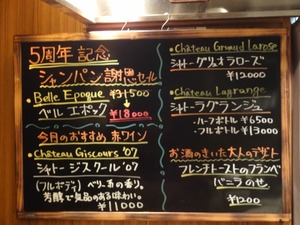 5周年 記念
シャンパン 謝恩セール
・Belle Epoque ¥31500
ベル エポック → ¥18000
今月のおすすめ 赤ワイン
・Château Giscours '07
シャトー ジスクール '07
(フルボディ) ベリー系の香り。
芳醇で気品のある味わい。
¥11000
・Château Gruaud Larose
シャトーグリュオラローズ
¥12000
・Château Lagrange
シャトーラグランジュ
・ハーフボトル ¥6500
・フルボトル ¥13000
お酒のきいた大人のデザート
フレンチトーストのフランベ
バニラのせ
¥1200